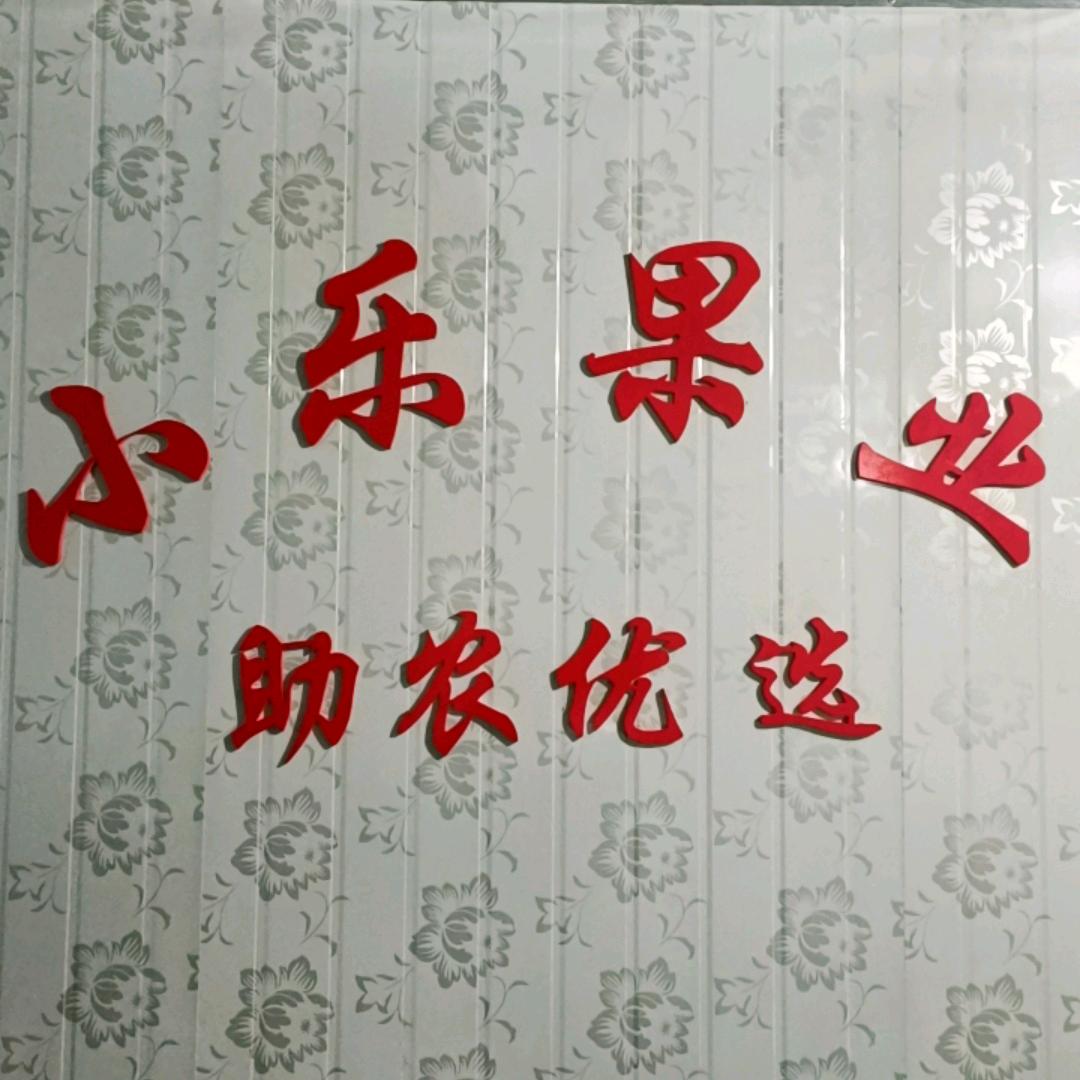 小乐果业
助农优选